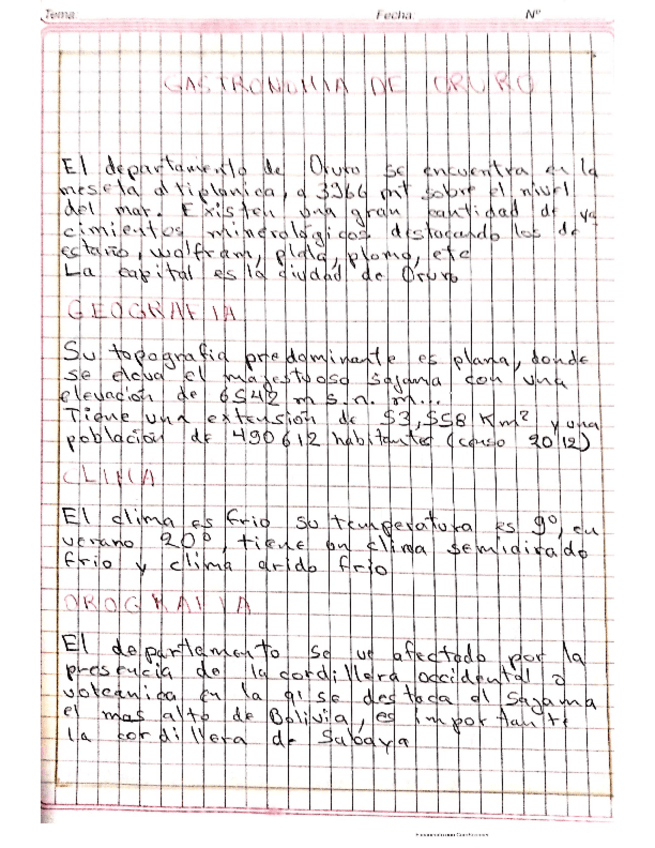 Tema: Fecha: Nº
GASTRONOMIA DE ORURO
El departamento de Oruro se encuentra en la
meseta altiplanica, a 3966 mt sobre el nivel
del mar. Existen una gran cantidad de ya
cimientos minerologicos destacando los de
estaño, wolfram, plata, plomo, etc
La capital es la ciudad de Oruro
GEOGRAFIA
Su topografia predominante es plana, donde
se eleva el magestuoso sajama con una
elevación de 6542 m s.n. m...
Tiene una extensión de 53,558 Km² y una
población de 490612 habitantes (censo 2012)
CLIMA
El clima es frio su temperatura es 9°, en
verano 20°, tiene un clima semidirado
frio y clima arido frio
OROGRAFIA
El departamento se ve afectado por la
presencia de la cordillera occidental o
volcanica en la q' se destaca el Sajama
el mas alto de Bolivia, es importante
la cordillera de Sabaya